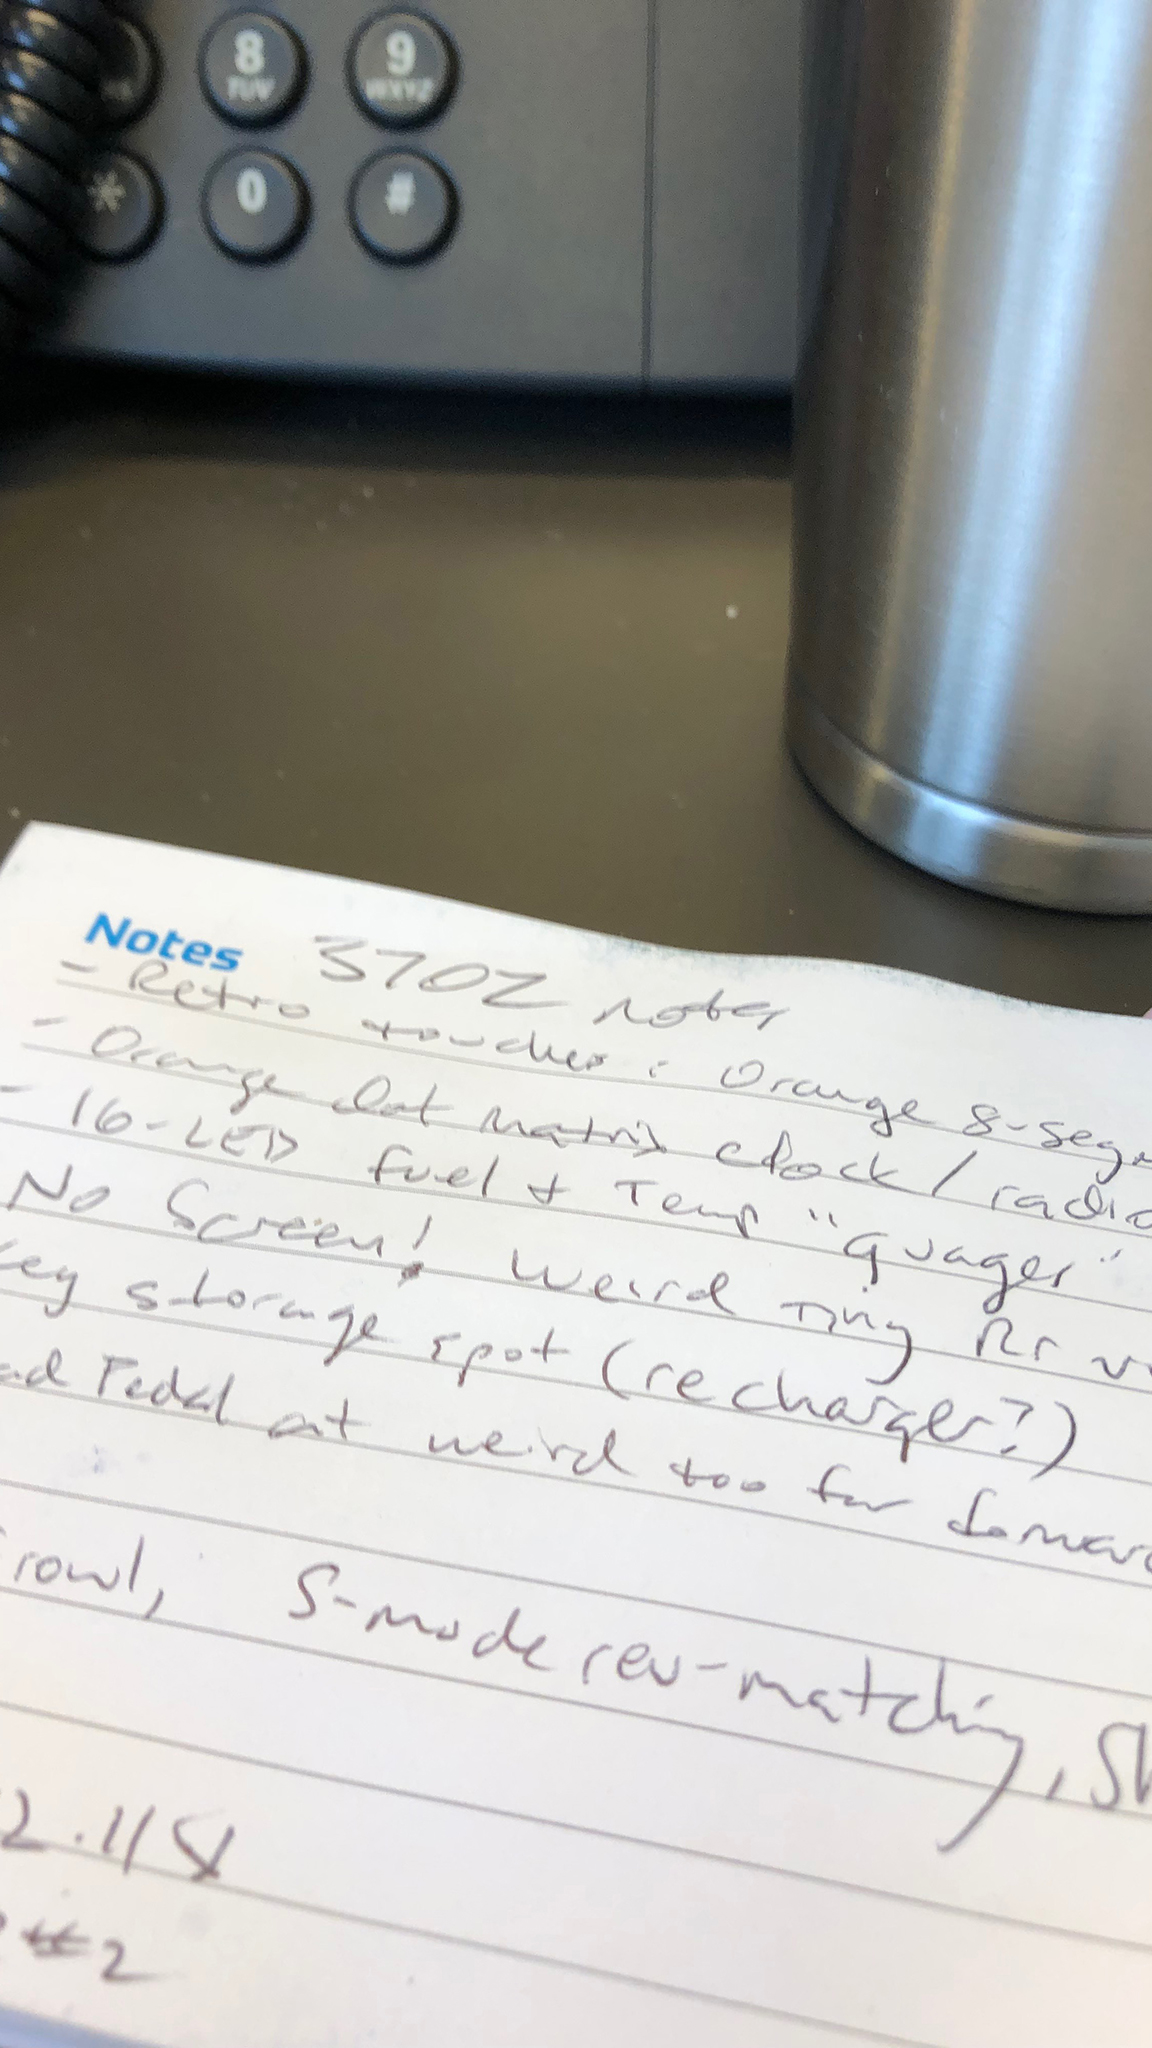 8
TUV
9
WXYZ
*
0
#
Notes 370Z notes
- Retro touches: Orange 8-segm
- Orange Dot matrix clock / radio
- 16-LED fuel + Temp "guages"
No Screen! Weird Tiny Rr v
ey storage spot (recharger?)
ad Pedal at weird too far forward
rowl, S-mode rev-matching, Sh
2.118
#2